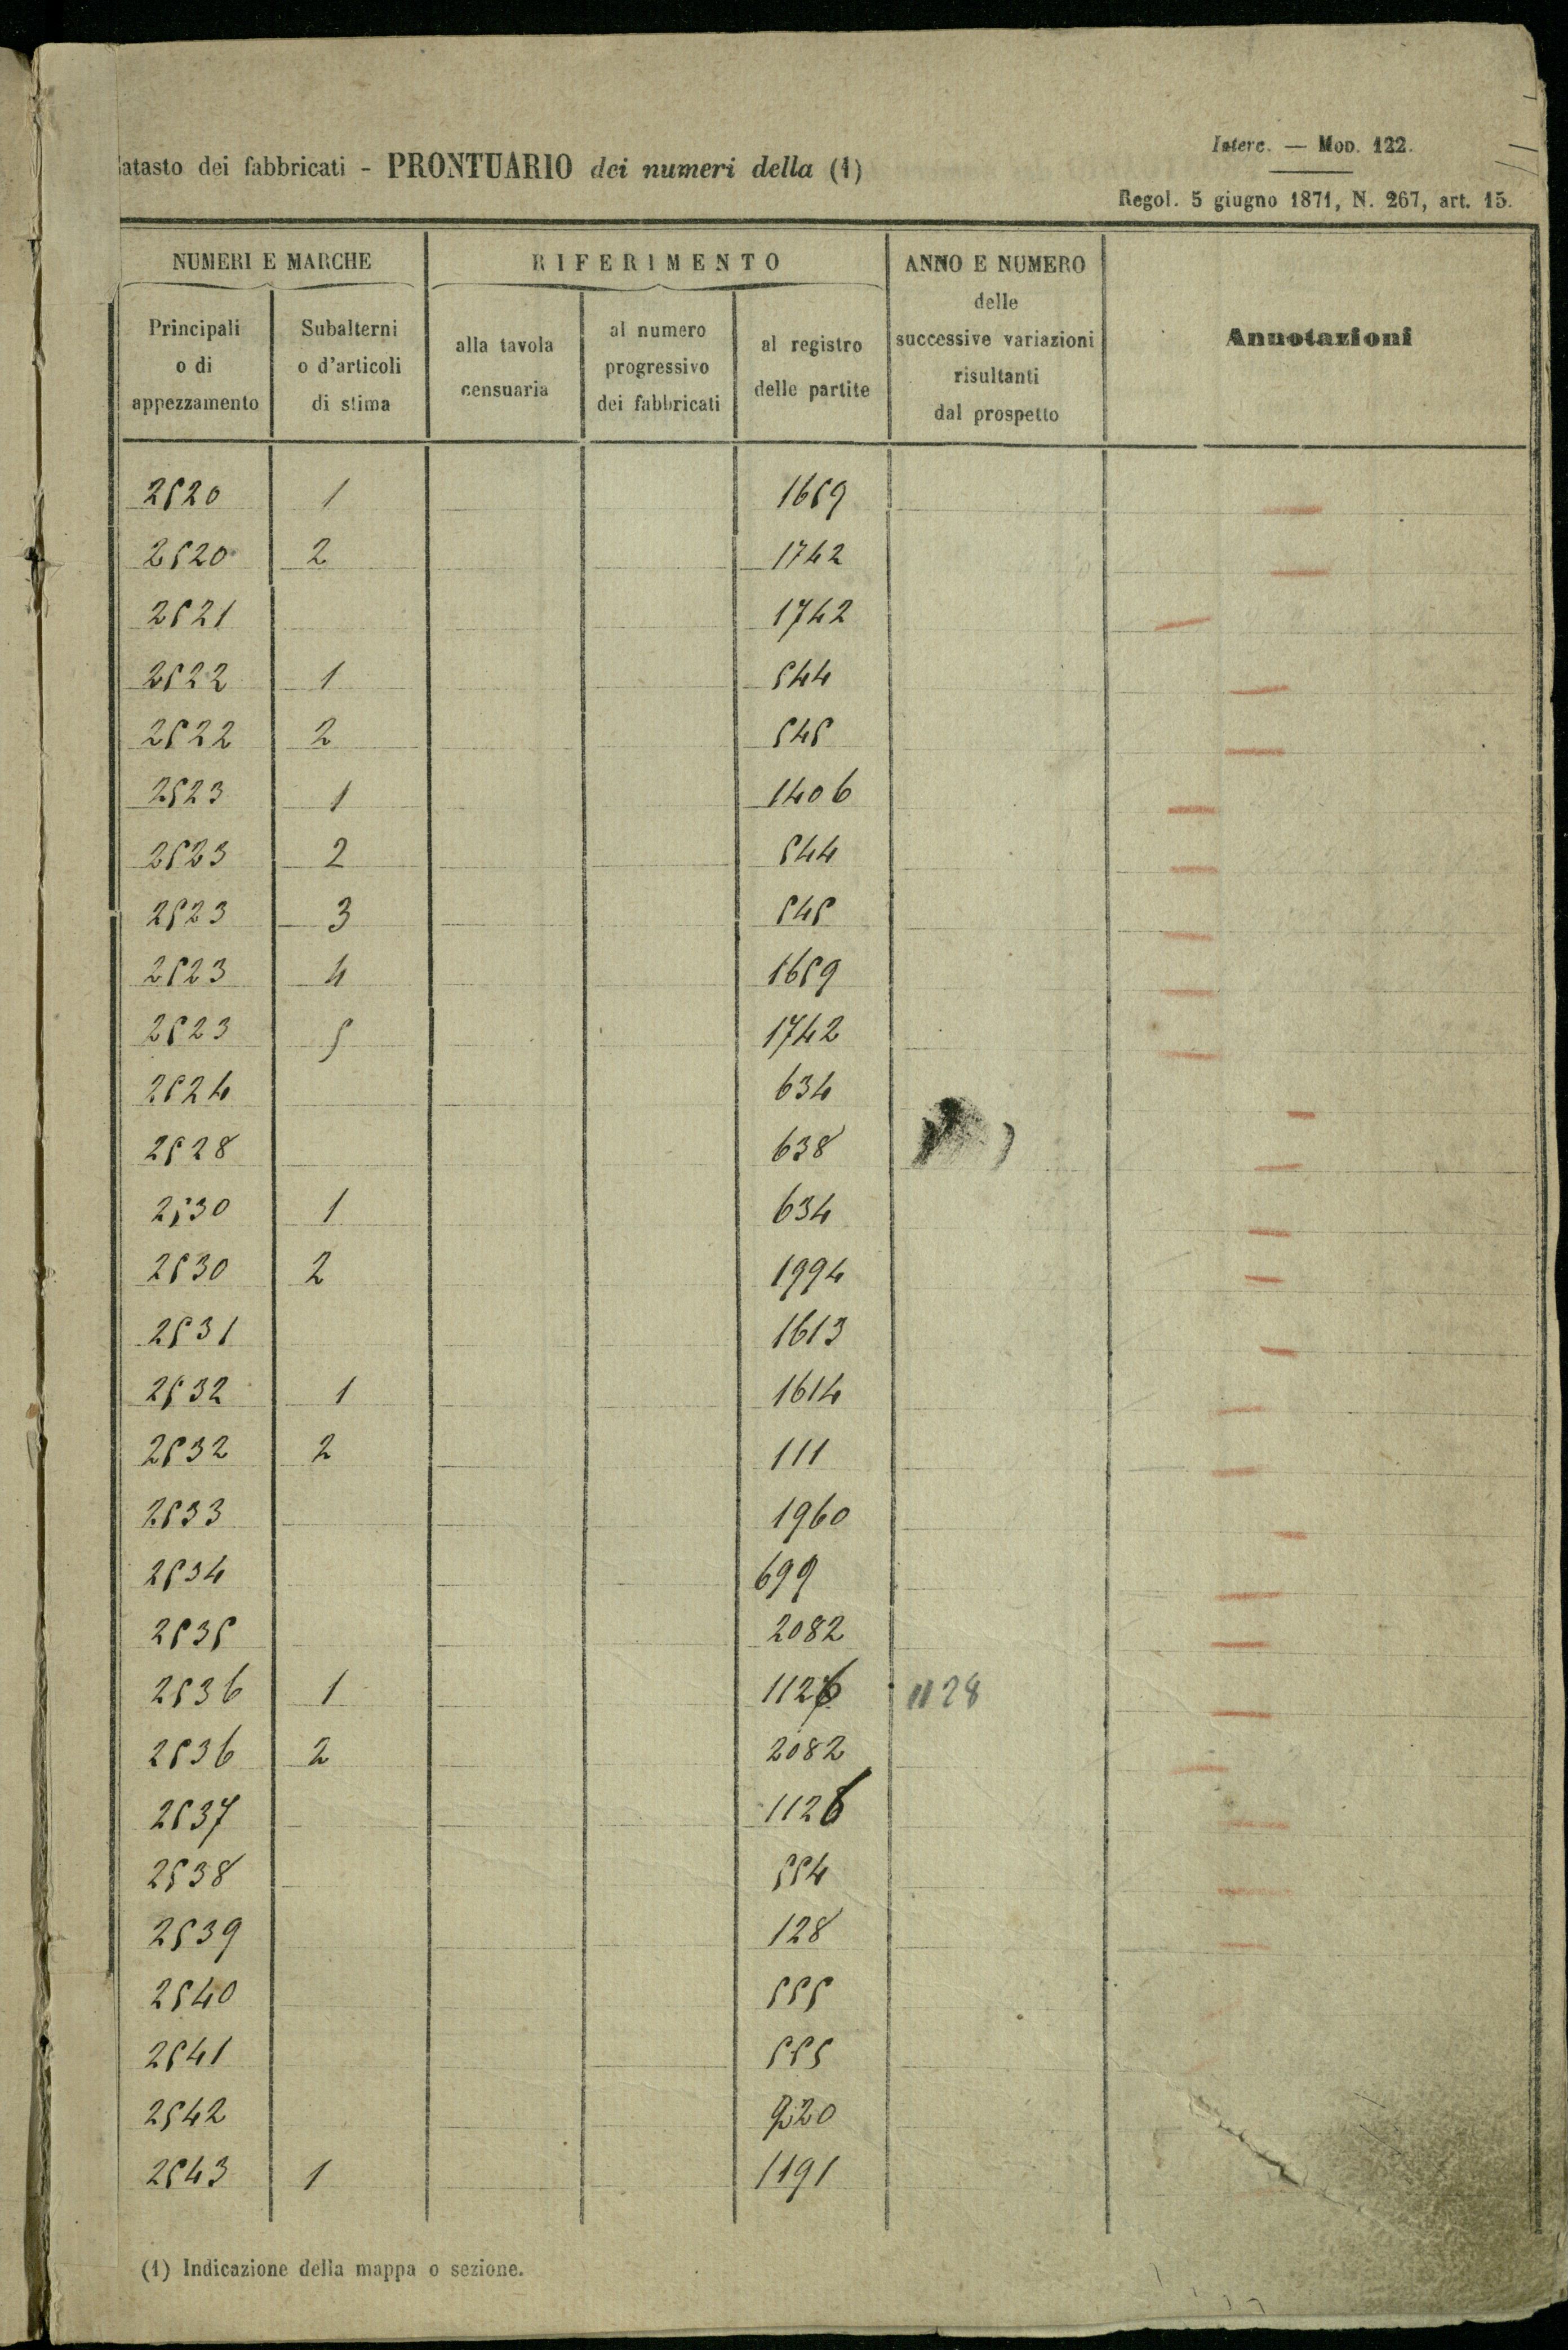 Interc. — Mod. 122.
atasto dei fabbricati - PRONTUARIO dei numeri della (1)
Regol. 5 giugno 1871, N. 267, art. 15.
NUMERI E MARCHE RIFERIMENTO ANNO E NUMERO delle successive variazioni risultanti dal prospetto Annotazioni
Principali o di appezzamento Subalterni o d'articoli di stima alla tavola censuaria al numero progressivo dei fabbricati al registro delle partite
2520 1 1659
2520 2 1742
2521 1742
2522 1 544
2522 2 545
2523 1 1406
2523 2 544
2523 3 545
2523 4 1659
2523 5 1742
2524 634
2528 638
2530 1 634
2530 2 1994
2531 1613
2532 1 1614
2532 2 111
2533 1960
2534 699
2535 2082
2536 1 1128
2536 2 2082
2537 1126
2538 554
2539 128
2540 555
2541 555
2542
2543 1 1191
(1) Indicazione della mappa o sezione.